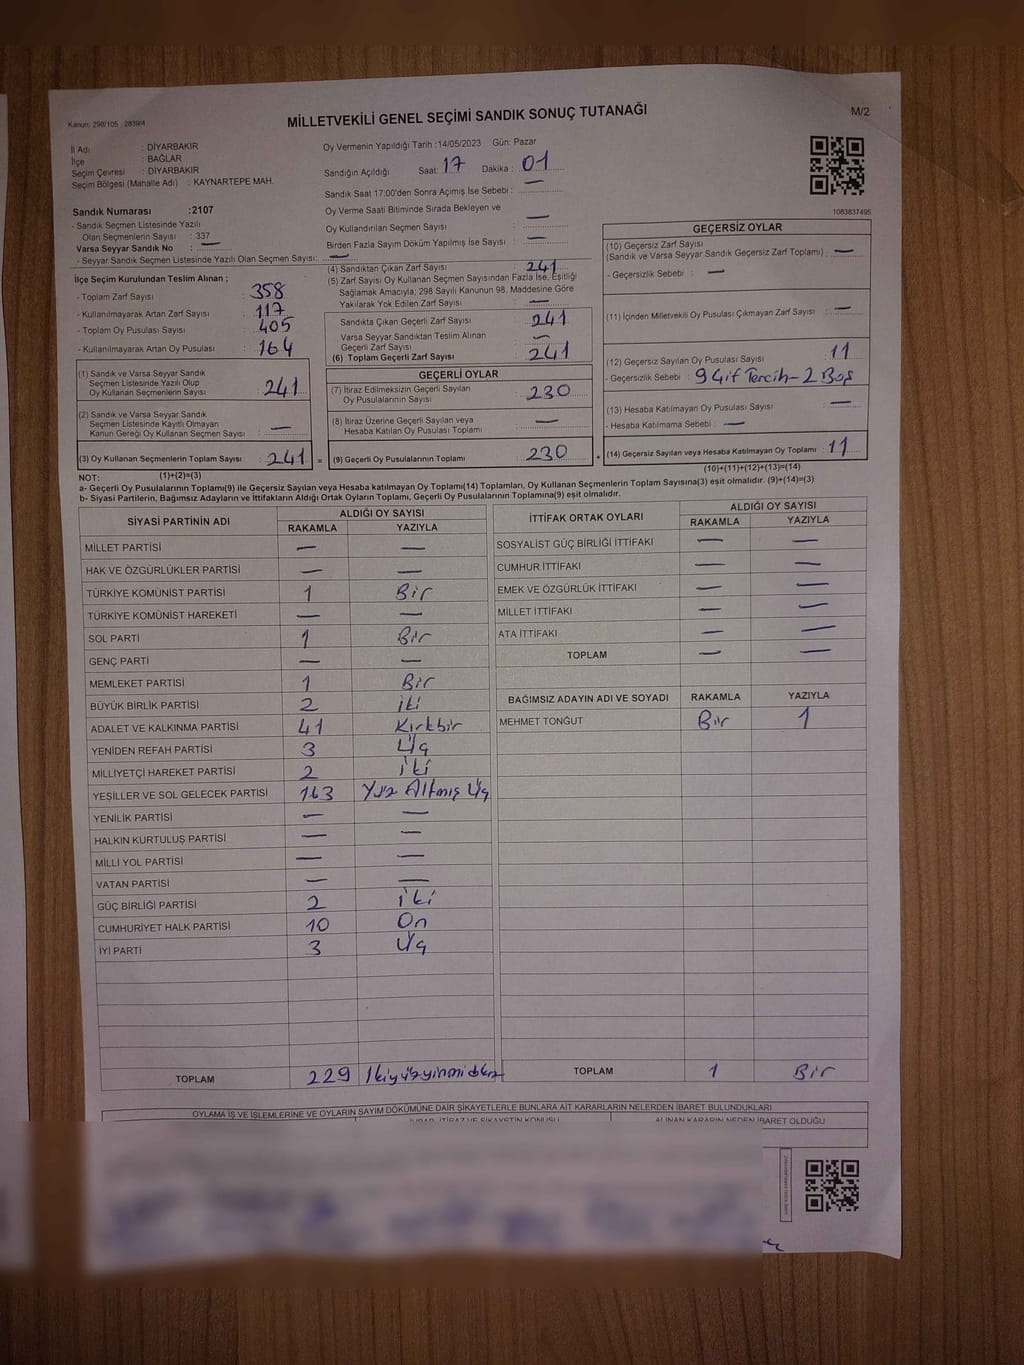 Kanun: 298/105 , 2839/4
MİLLETVEKİLİ GENEL SEÇİMİ SANDIK SONUÇ TUTANAĞI
M/2
İl Adı : DİYARBAKIR
İlçe : BAĞLAR
Seçim Çevresi : DİYARBAKIR
Seçim Bölgesi (Mahalle Adı) : KAYNARTEPE MAH.
Oy Vermenin Yapıldığı Tarih :14/05/2023 Gün: Pazar
Sandığın Açıldığı Saat: 17 Dakika : 01
Sandık Saat 17:00'den Sonra Açımış İse Sebebi : —
Oy Verme Saati Bitiminde Sırada Bekleyen ve
Oy Kullandırılan Seçmen Sayısı : —
Birden Fazla Sayım Döküm Yapılmış İse Sayısı : —
1083837495
Sandık Numarası :2107
- Sandık Seçmen Listesinde Yazılı
Olan Seçmenlerin Sayısı : 337
Varsa Seyyar Sandık No : —
- Seyyar Sandık Seçmen Listesinde Yazılı Olan Seçmen Sayısı : —
İlçe Seçim Kurulundan Teslim Alınan ;
- Toplam Zarf Sayısı : 358
- Kullanılmayarak Artan Zarf Sayısı : 117
- Toplam Oy Pusulası Sayısı : 405
- Kullanılmayarak Artan Oy Pusulası : 164
(1) Sandık ve Varsa Seyyar Sandık
Seçmen Listesinde Yazılı Olup
Oy Kullanan Seçmenlerin Sayısı : 241
(2) Sandık ve Varsa Seyyar Sandık
Seçmen Listesinde Kayıtlı Olmayan
Kanun Gereği Oy Kullanan Seçmen Sayısı : —
(3) Oy Kullanan Seçmenlerin Toplam Sayısı : 241 =
(4) Sandıktan Çıkan Zarf Sayısı : 241
(5) Zarf Sayısı Oy Kullanan Seçmen Sayısından Fazla İse, Eşitliği
Sağlamak Amacıyla; 298 Sayılı Kanunun 98. Maddesine Göre
Yakılarak Yok Edilen Zarf Sayısı : —
Sandıkta Çıkan Geçerli Zarf Sayısı : 241
Varsa Seyyar Sandıktan Teslim Alınan
Geçerli Zarf Sayısı : —
(6) Toplam Geçerli Zarf Sayısı : 241
GEÇERLİ OYLAR
(7) İtiraz Edilmeksizin Geçerli Sayılan
Oy Pusulalarının Sayısı : 230
(8) İtiraz Üzerine Geçerli Sayılan veya
Hesaba Katılan Oy Pusulası Toplamı : —
(9) Geçerli Oy Pusulalarının Toplamı : 230 +
GEÇERSİZ OYLAR
(10) Geçersiz Zarf Sayısı
(Sandık ve Varsa Seyyar Sandık Geçersiz Zarf Toplamı) : —
- Geçersizlik Sebebi : —
(11) İçinden Milletvekili Oy Pusulası Çıkmayan Zarf Sayısı : —
(12) Geçersiz Sayılan Oy Pusulası Sayısı : 11
- Geçersizlik Sebebi : 9 Çift Tercih - 2 Boş
(13) Hesaba Katılmayan Oy Pusulası Sayısı : —
- Hesaba Katılmama Sebebi : —
(14) Geçersiz Sayılan veya Hesaba Katılmayan Oy Toplamı : 11
NOT: (1)+(2)=(3)
(10)+(11)+(12)+(13)=(14)
a- Geçerli Oy Pusulalarının Toplamı(9) ile Geçersiz Sayılan veya Hesaba katılmayan Oy Toplamı(14) Toplamları, Oy Kullanan Seçmenlerin Toplam Sayısına(3) eşit olmalıdır. (9)+(14)=(3)
b- Siyasi Partilerin, Bağımsız Adayların ve İttifakların Aldığı Ortak Oyların Toplamı, Geçerli Oy Pusulalarının Toplamına(9) eşit olmalıdır.
SİYASİ PARTİNİN ADI ALDIĞI OY SAYISI
RAKAMLA YAZIYLA
MİLLET PARTİSİ — —
HAK VE ÖZGÜRLÜKLER PARTİSİ — —
TÜRKİYE KOMÜNİST PARTİSİ 1 Bir
TÜRKİYE KOMÜNİST HAREKETİ — —
SOL PARTİ 1 Bir
GENÇ PARTİ — —
MEMLEKET PARTİSİ 1 Bir
BÜYÜK BİRLİK PARTİSİ 2 iki
ADALET VE KALKINMA PARTİSİ 41 Kırkbir
YENİDEN REFAH PARTİSİ 3 Üç
MİLLİYETÇİ HAREKET PARTİSİ 2 iki
YEŞİLLER VE SOL GELECEK PARTİSİ 163 Yüz Altmış Üç
YENİLİK PARTİSİ — —
HALKIN KURTULUŞ PARTİSİ — —
MİLLİ YOL PARTİSİ — —
VATAN PARTİSİ — —
GÜÇ BİRLİĞİ PARTİSİ 2 iki
CUMHURİYET HALK PARTİSİ 10 On
İYİ PARTİ 3 Üç
TOPLAM 229 ikiyüzyirmidokuz
İTTİFAK ORTAK OYLARI ALDIĞI OY SAYISI
RAKAMLA YAZIYLA
SOSYALİST GÜÇ BİRLİĞİ İTTİFAKI — —
CUMHUR İTTİFAKI — —
EMEK VE ÖZGÜRLÜK İTTİFAKI — —
MİLLET İTTİFAKI — —
ATA İTTİFAKI — —
TOPLAM — —
BAĞIMSIZ ADAYIN ADI VE SOYADI RAKAMLA YAZIYLA
MEHMET TONĞUT Bir 1
TOPLAM 1 Bir
OYLAMA İŞ VE İŞLEMLERİNE VE OYLARIN SAYIM DÖKÜMÜNE DAİR ŞİKAYETLERLE BUNLARA AİT KARARLARIN NELERDEN İBARET BULUNDUKLARI
İTİRAZ VE ŞİKAYETİN KONUSU ALINAN KARARIN NEDEN İBARET OLDUĞU